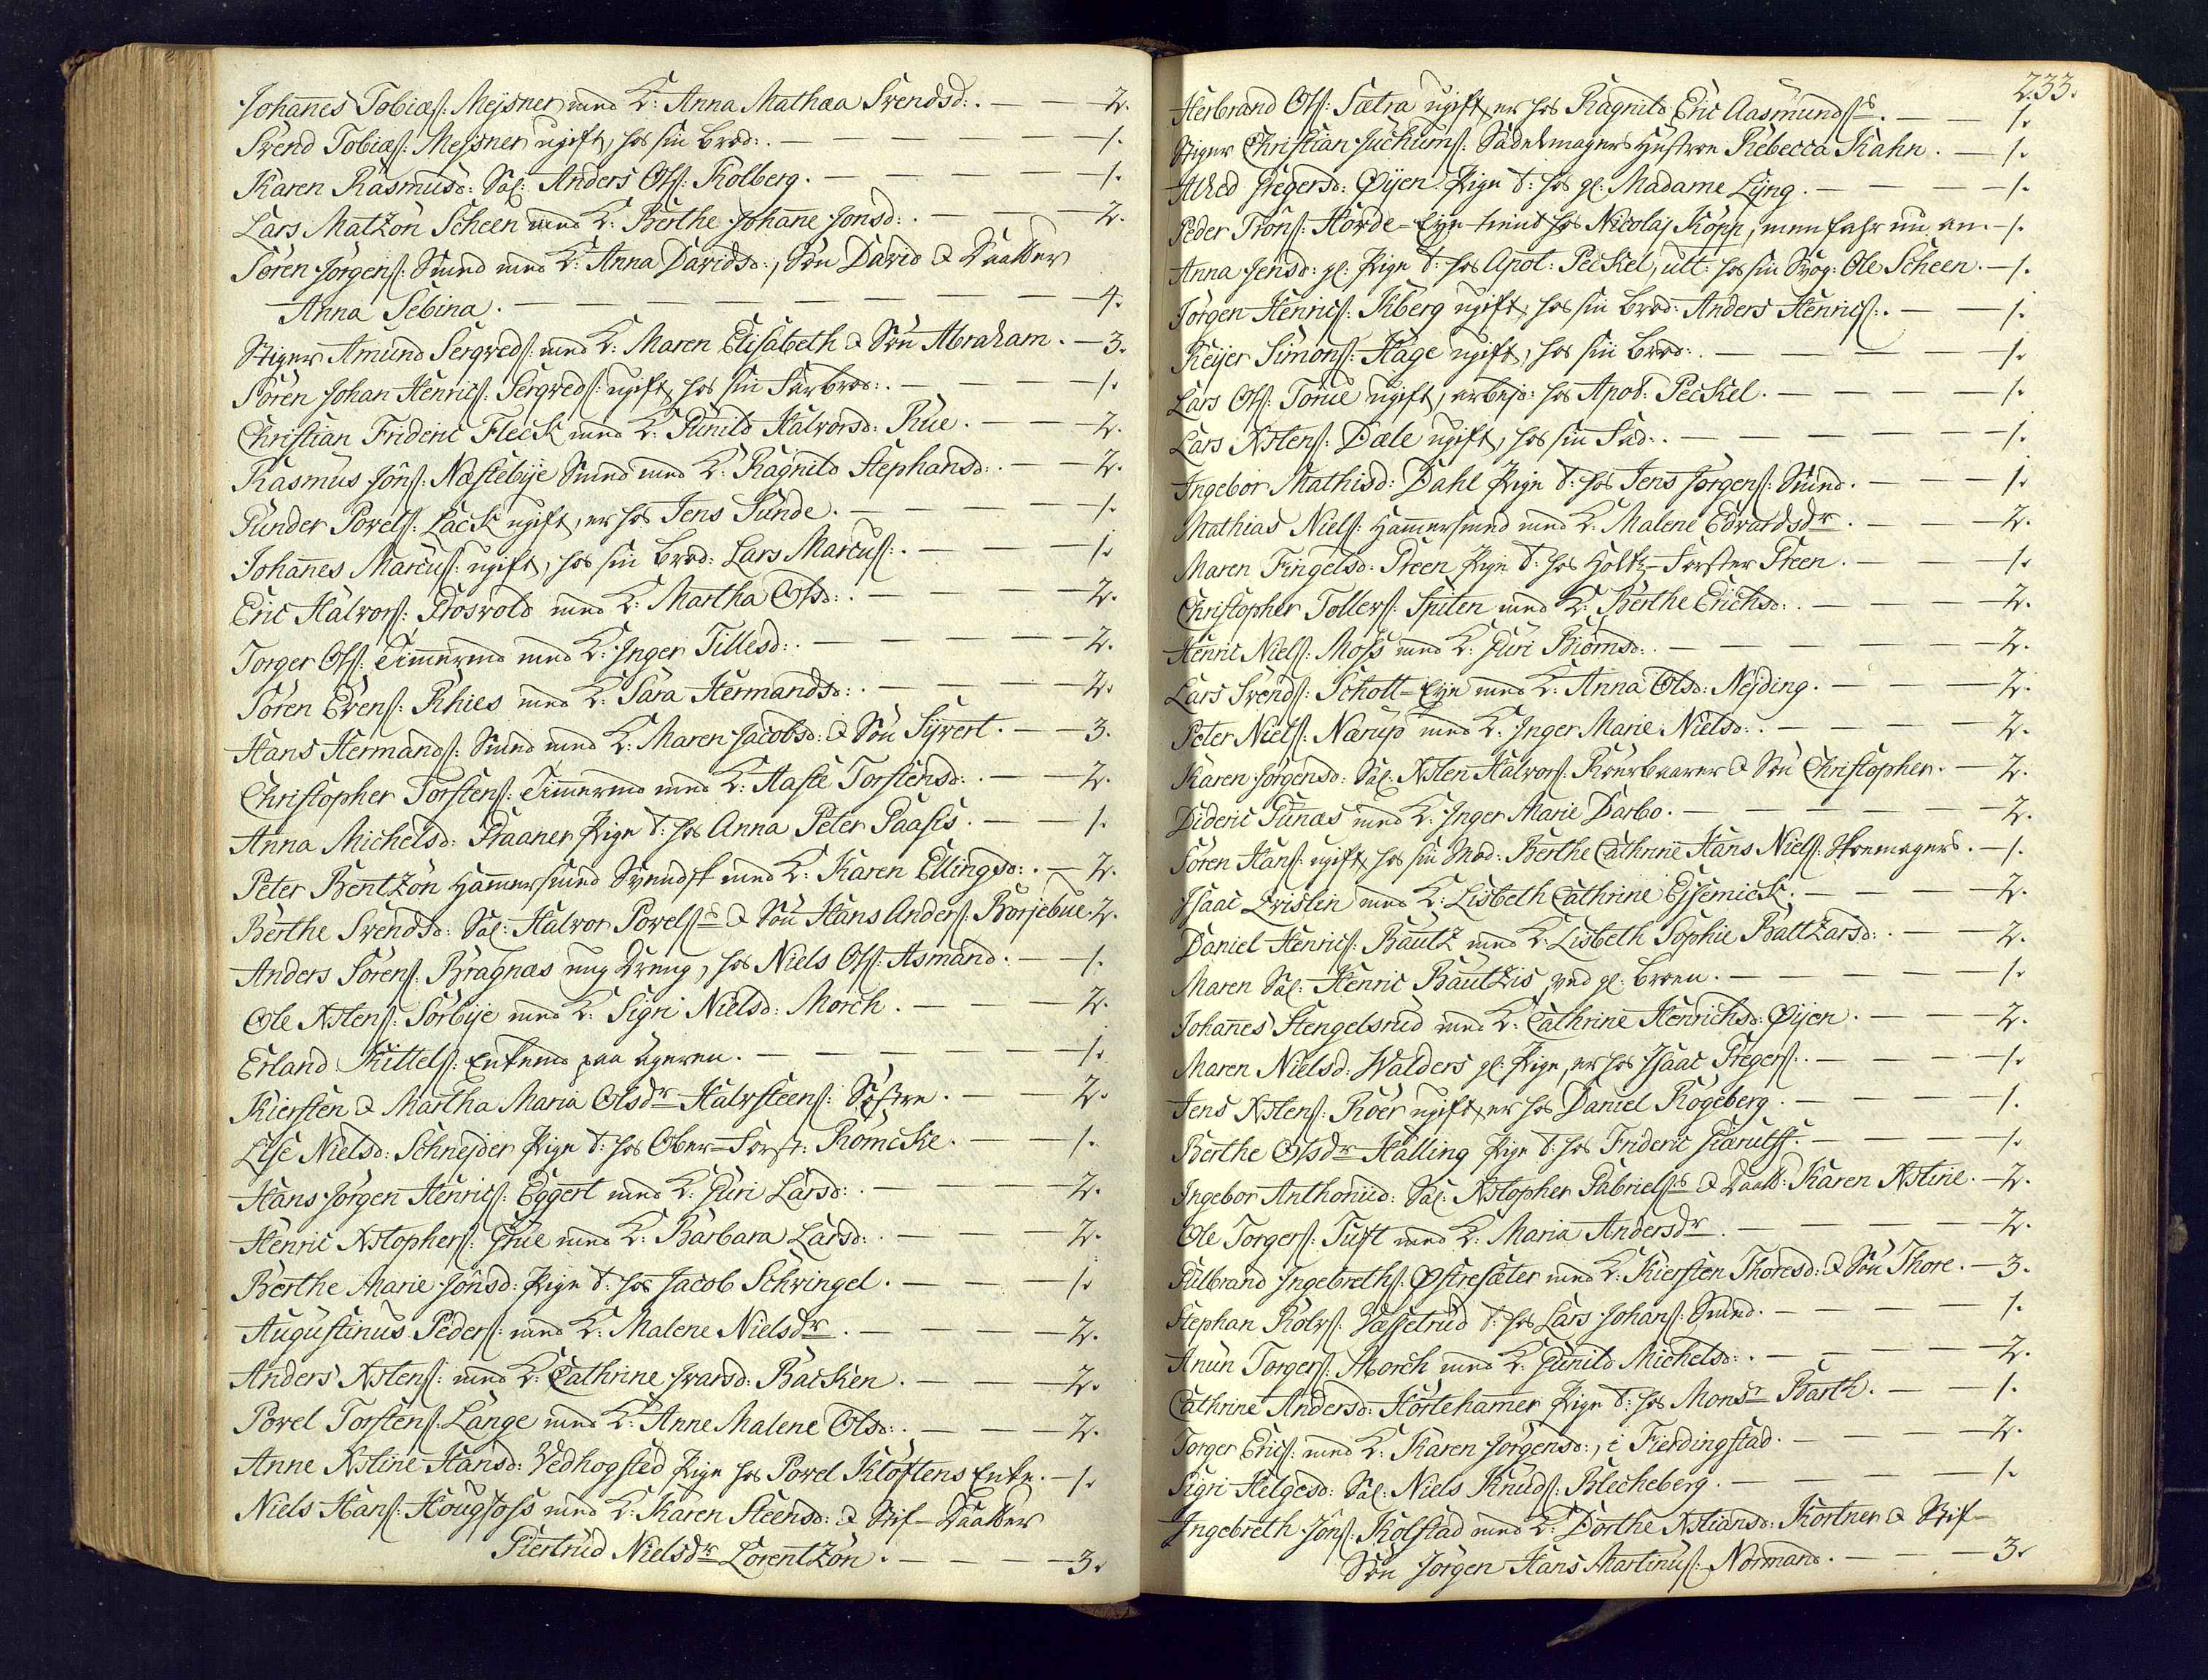 Johannes Tobiæs: Mejsner med K: Anna Mathæa Svendsd: . — — 2.
Svend Tobiæs: Mejsner ugift, hos sin Brod: . — — — — — 1.
Karen Rasmusd: Sal: Anders Ols: Kolberg. — — — — — 1.
Lars Matzøn Scheen med K: Berthe Johanne Jonsd: . — — — 2.
Søren Jørgens: Smed med K: Anna Davidsd:, Søn David & Daatter
Anna Sebina. — — — — — — — — — 4.
Stiger Amund Sergveds: med K: Maren Elisabeth & Søn Abraham. — 3.
Søren Johan Henrics: Sergveds: ugift, hos sin Farbrod: . — — — 1.
Christian Frideric Fleck med K: Gunild Halvorsd: Rue. — — — 2.
Rasmus Jöns: Næstebÿe Smed med K: Ragnild Stephansd: . — — 2.
Gunder Povels: Lack ugift, er hos Jens Funde. — — — — 1.
Johannes Marcus: ugift, hos sin Brod: Lars Marcus: . — — — 1.
Eric Halvors: Prosvold med K: Martha Olsd: . — — — — 2.
Torger Ols: Timmermd med K: Inger Tillesd: . — — — — — 2.
Søren Evens: Rhies med K: Sara Hermandsd: . — — — — 2.
Hans Hermands: Smed med K: Maren Jacobsd: & Søn Sÿvert. — — 3.
Christopher Torstens: Timmermd med K: Aaste Torstensd: . — — 2.
Anna Michelsd: Praaner Pige t: hos Anna Peter Paasis. — — — 1.
Peter Bentzøn Hammersmed Svendsk med K: Karen Ellingsd: . — 2.
Berthe Svendsd: Sal: Halvor Povels: & Søn Hans Anders: Borjebue. 2.
Anders Sørens: Bragnæs ung Dreng, hos Niels Ols: Asmand. — — 1.
Ole Xstens: Sørbÿe med K: Sigri Nielsd: Morch. — — — 2.
Erland Kittels: Enkemd paa Ageren. — — — — — 1.
Kiersten & Martha Maria Olsdr Halvsteens: Søstre. — — — 2.
Lise Nielsd: Schnejder Pige t: hos Ober-Forst: Rømcke. — — — 1.
Hans Jørgen Henrics: Eggert med K: Guri Larsd: . — — — — 2.
Henric Xstophers: Grue med K: Barbara Larsd: . — — — — 2.
Berthe Marie Jönsd: Pige t: hos Jacob Schvingel. — — — — 1.
Augustinus Peders: med K: Malene Nielsdr. — — — — 2.
Anders Xstens: med K: Cathrine Ivarsd: Backen. — — — 2.
Povel Torstens: Lange med K: Anne Malene Olsd: . — — — 2.
Anne Xstine Hansd: Vedhogsted Pige hos Povel Kløftens Enke. — 1.
Niels Hans: Hougfoss med K: Karen Steensd: & Stif-Daatter
Giertrud Nielsdr Lorentzøn. — — — — 3.
233.
Herbrand Ols: Sætra ugift, er hos Ragnild Eric Aasmunds: . — — 1.
Stiger Christian Juchums: Sadelmagers Hustroe Rebecca Kahn. — 1.
Alhed Gregersd: Øÿen Pige t: hos gl: Madame Lÿng. — — — 1.
Peder Tröns: Horde-Eye tient hos Nicolaj Köpp, men fahr nu en. — 1.
Anna Jensd: gl: Pige t: hos Apot: Peckel, ült: hos sin Svog: Ole Scheen. — 1.
Jørgen Henrics: Kberg ugift, hos sin Brod: Anders Henrics: . — — 1.
Reÿer Simons: Hage ugift, hos sin Brod: . — — — — — 1.
Lars Ols: Torue ugift, arbejd: hos Apot: Peckel. — — — — 1.
Lars Xstens: Dæle ugift, hos sin Fad: . — — — — — 1.
Ingebor Mathisd: Dahl Pige t: hos Jens Jørgens: Smed. — — — 1.
Mathias Niels: Hammersmed med K: Malene Edvardsdr. — — — 2.
Maren Fingelsd: Steen Pige t: hos Holtz-Forster Steen. — — — 1.
Christopher Tollevs: Spiten med K: Berthe Erichsd: . — — — 2.
Henric Niels: Moss med K: Guri Biörnsd: . — — — — — 2.
Lars Svends: Schott-Eye med K: Anna Olsd: Nejding. — — — 2.
Peter Niels: Nærup med K: Inger Marie Nielsd: . — — — — 2.
Karen Jørgensd: Sal: Xsten Halvors: Kourbærer & Søn Christopher. — 2.
Dideric Funæs med K: Inger Marie Darbo. — — — — — 2.
Søren Hans: ugift, hos sin Mod: Berthe Cathrine Hans Niels: Skoemagers. — 1.
Isaac Qvislin med K: Lisbeth Cathrine Ejsemick. — — — 2.
Daniel Henrics: Bautz med K: Lisbeth Sophie Baltzarsd: . — — 2.
Maren Sal: Henric Bautzis ved gl: Broen. — — — — — 1.
Johannes Stengelsrud med K: Cathrine Henrichsd: Øijen. — — — 2.
Maren Nielsd: Walders gl: Pige, er hos Isaac Gregers: . — — — 1.
Jens Xstens: Roer ugift, er hos Daniel Rogeberg. — — — — 1.
Berthe Olsdr Halling Pige t: hos Frideric Giærulff. — — — — 1.
Ingebor Anthoniid: Sal: Xstopher Gabriels: & Daatt: Karen Xstine. — 2.
Ole Torgers: Tuft med K: Maria Andersdr. — — — — — 2.
Gulbrand Ingebreths: Østresæter med K: Kiersten Thoresd: & Søn Thore. — 3.
Stephan Rolvs: Væssetrud t: hos Lars Johans: Smed. — — — — 1.
Anun Torgers: Morch med K: Gunild Michelsd: . — — — — 2.
Cathrine Andersd: Hortehamer Pige t: hos Monsr Barth. — — 1.
Torger Erics: med K: Karen Jørgensd:, i Fierdingstad. — — — 2.
Sigri Helgesd: Sal: Niels Knuds: Blecheberg. — — — — — 1.
Ingebreth Jöns: Kolstad med K: Dorthe Xstiansd: Kortner & Stif-
Søn Jørgen Hans Martinus: Normand. — — — 3.